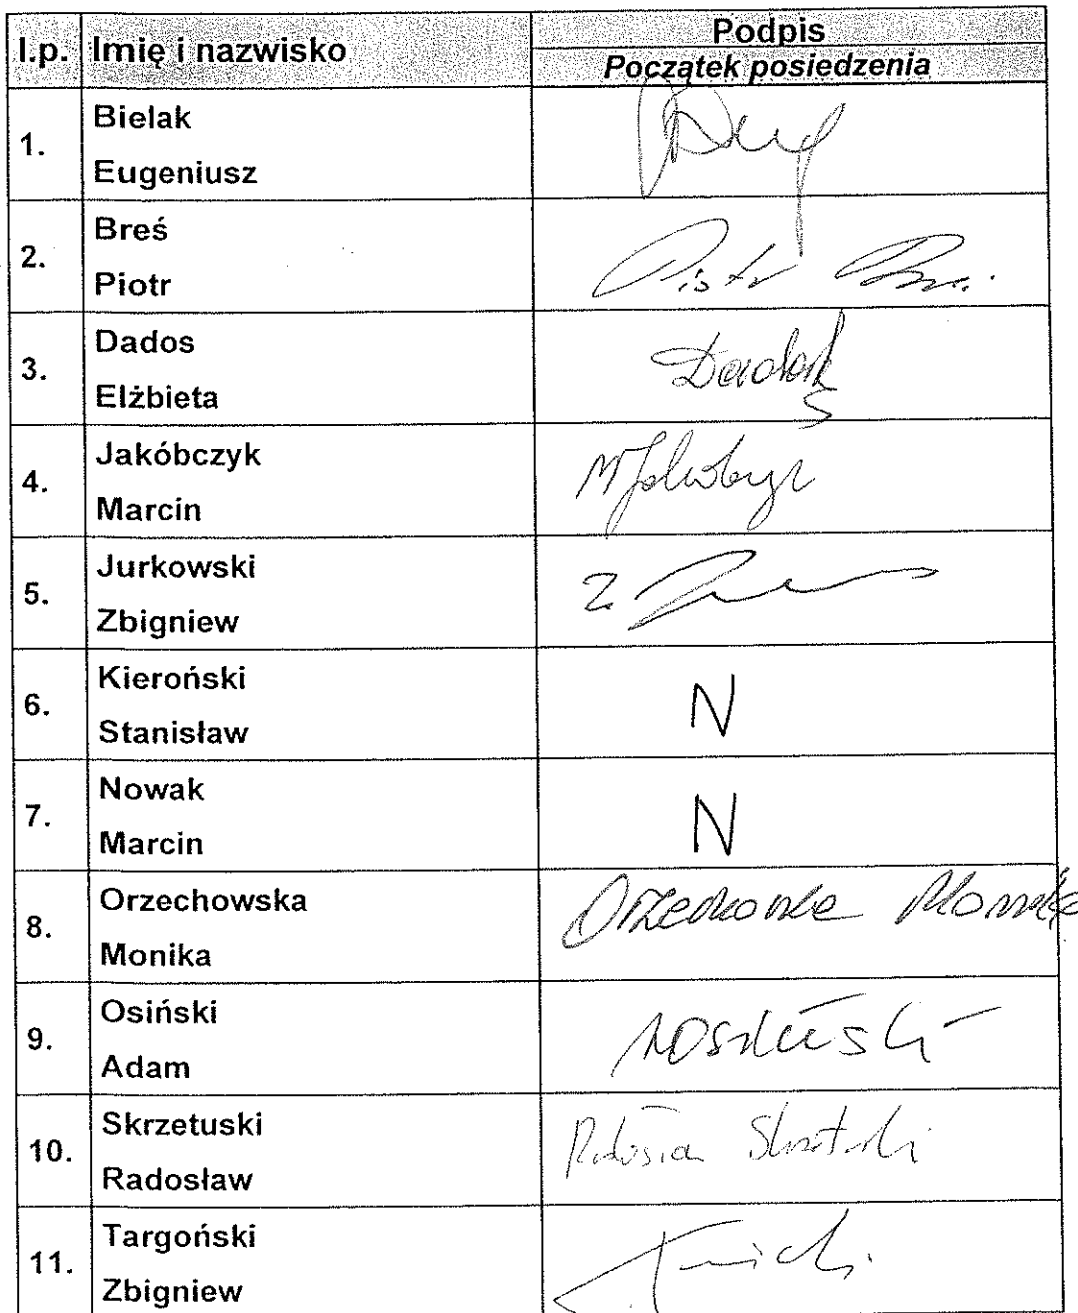 l.p. Imię i nazwisko Podpis
Początek posiedzenia
1. Bielak
Eugeniusz
2. Breś
Piotr
Piotr
3. Dados
Elżbieta
4. Jakóbczyk
Marcin
5. Jurkowski
Zbigniew
Z.
6. Kieroński
Stanisław
N
7. Nowak
Marcin
N
8. Orzechowska
Monika
Orzechowska Monika
9. Osiński
Adam
10. Skrzetuski
Radosław
11. Targoński
Zbigniew